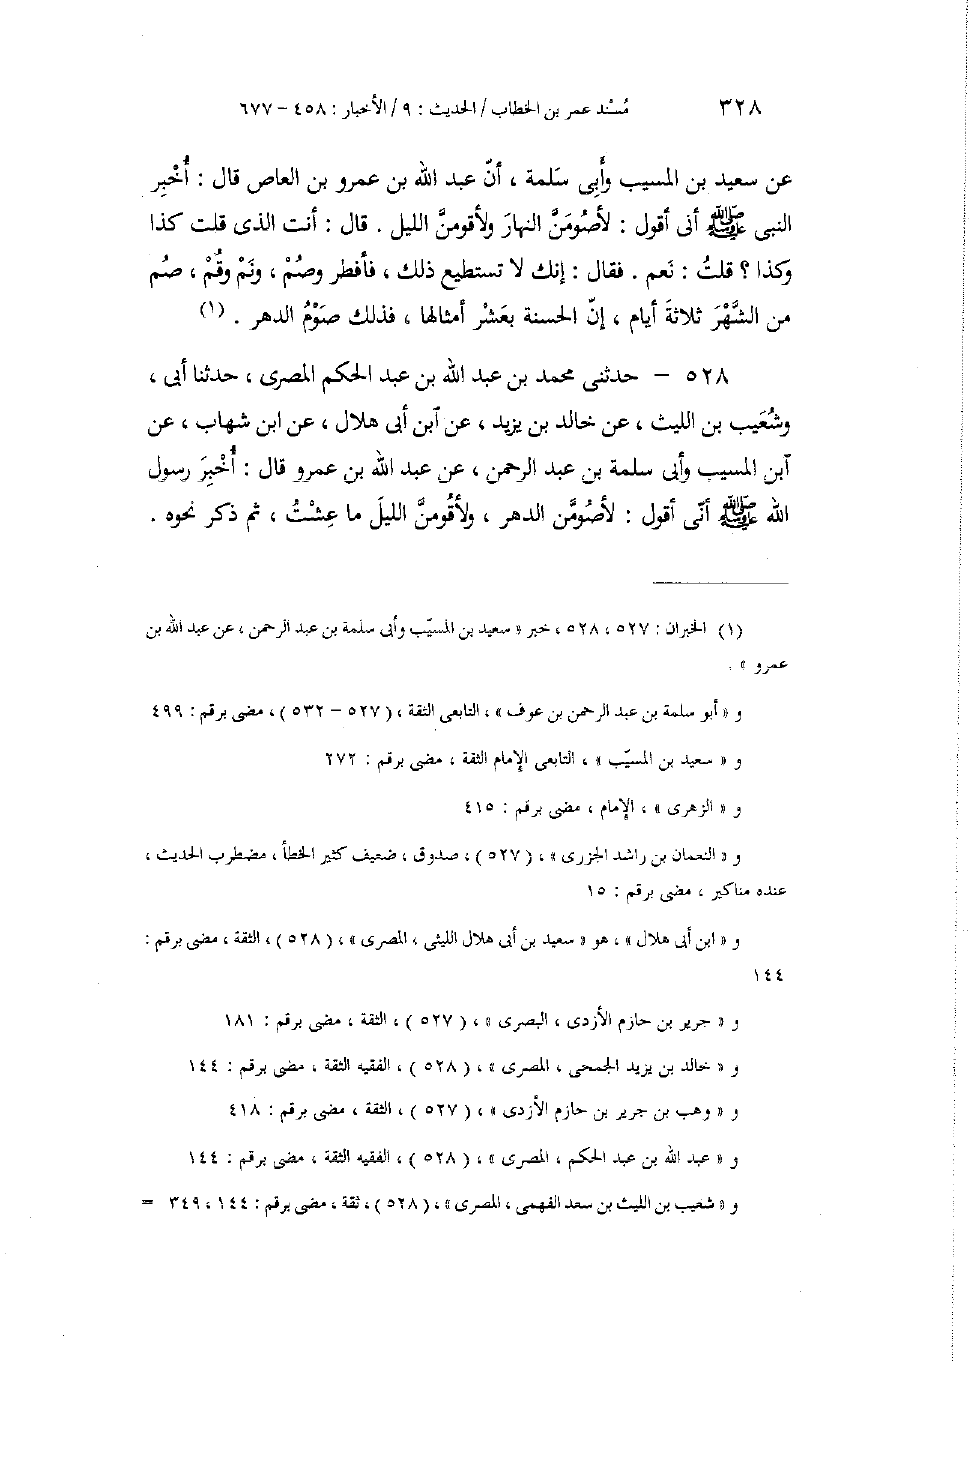 ٣٢٨ مُسْند عمر بن الخطاب / الحديث : ٩ / الأخبار : ٤٥٨ – ٦٧٧
عن سعيد بن المسيب وأَبِى سَلمة ، أنّ عبد الله بن عمرو بن العاص قال : أُخْبِر
النبى ﷺ أنى أقول : لأصُومَنَّ النهارَ ولأقومنَّ الليل . قال : أنت الذى قلت كذا
وكذا ؟ قلتُ : نَعم . فقال : إنك لا تستطيع ذلك ، فأفطر وصُمْ ، ونَمْ وقُمْ ، صُم
من الشَّهْرَ ثلاثةَ أيام ، إنّ الحسنة بعَشْر أمثالها ، فذلك صَوْمُ الدهر . (١)
٥٢٨ – حدثنى محمد بن عبد الله بن عبد الحكم المصرى ، حدثنا أبى ،
وشُعَيب بن الليث ، عن خالد بن يزيد ، عن آبن أبى هلال ، عن ابن شهاب ، عن
آبن المسيب وأبى سلمة بن عبد الرحمن ، عن عبد الله بن عمرو قال : أُخْبِرَ رسول
الله ﷺ أنّى أقول : لأصُومَّن الدهر ، ولأقُومنَّ الليلَ ما عِشْتُ ، ثم ذكر نحوه .
(١) الخبران : ٥٢٧ ، ٥٢٨ ، خبر « سعيد بن المسيّب وأبى سلمة بن عبد الرحمن ، عن عبد الله بن
عمرو » .
و « أبو سلمة بن عبد الرحمن بن عوف » ، التابعى الثقة ، ( ٥٢٧ – ٥٣٢ ) ، مضى برقم : ٤٩٩
و « سعيد بن المسيّب » ، التابعى الإمام الثقة ، مضى برقم : ٢٧٢
و « الزهرى » ، الإمام ، مضى برقم : ٤١٥
و « النعمان بن راشد الجزرى » ، ( ٥٢٧ ) ، صدوق ، ضعيف كثير الخطأ ، مضطرب الحديث ،
عنده مناكير ، مضى برقم : ١٥
و « ابن أبى هلال » ، هو « سعيد بن أبى هلال الليثى ، المصرى » ، ( ٥٢٨ ) ، الثقة ، مضى برقم :
١٤٤
و « جرير بن حازم الأزدى ، البصرى » ، ( ٥٢٧ ) ، الثقة ، مضى برقم : ١٨١
و « خالد بن يزيد الجمحى ، المصرى » ، ( ٥٢٨ ) ، الفقيه الثقة ، مضى برقم : ١٤٤
و « وهب بن جرير بن حازم الأزدى » ، ( ٥٢٧ ) ، الثقة ، مضى برقم : ٤١٨
و « عبد الله بن عبد الحكم ، المصرى » ، ( ٥٢٨ ) ، الفقيه الثقة ، مضى برقم : ١٤٤
و « شعيب بن الليث بن سعد الفهمى ، المصرى » ، ( ٥٢٨ ) ، ثقة ، مضى برقم : ١٤٤ ، ٣٤٩ =